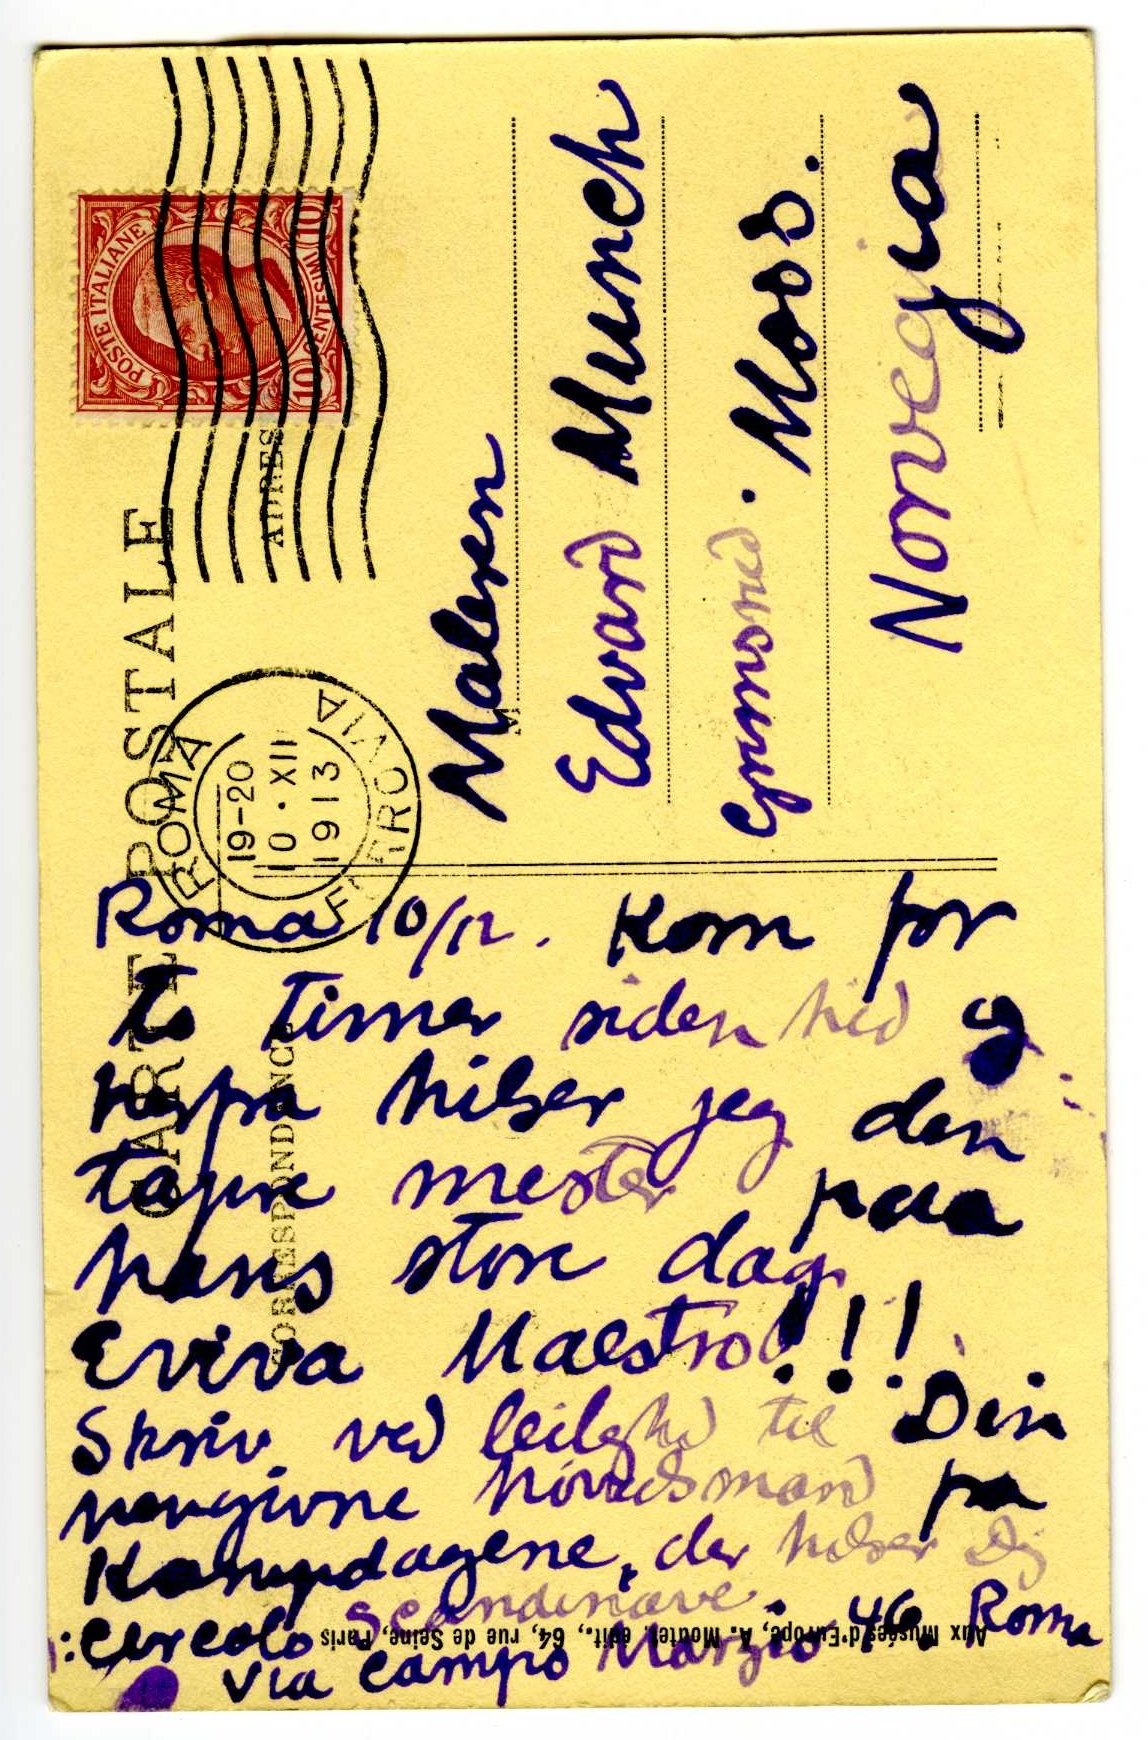 CARTE POSTALE
CORRESPONDANCE
ADRES
POSTE ITALIANE
10 CENTESIMI 10
ROMA
19-20
10 · XII
1913
FERROVIA
Maleren
Edvard Munch
Grimsrød. Moss.
Norvegia
Roma 10/12. Kom for
to timer siden hid og
herfra hilser jeg den
tapre mester paa
hans store dag.
Eviva Maestro!!!
Skriv ved leilghd til Din
hengivne høvedsmand fra
Kampdagene, der hilser Dig
:Circolo Scandinave.
Via Campo Marzio 46 Roma
Aux Musées d'Europe, A. Moutet, édit., 64, rue de Seine, Paris